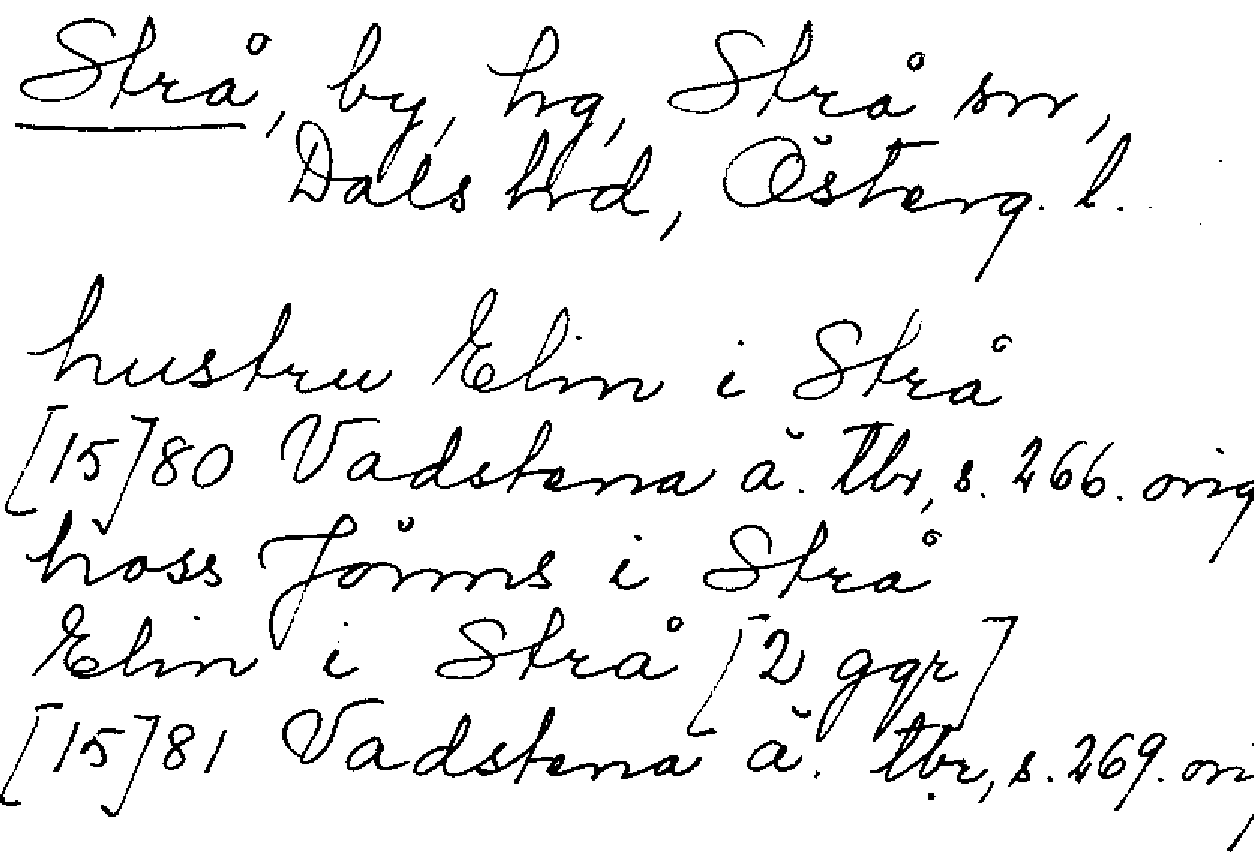 Strå, by, hg, Strå sn,
Dals hrd, Österg. l.
hustru Elin i Strå
[15]80 Vadstena ä. tbr, s. 266. orig
hoss Jönns i Strå
Elin i Strå [2 ggr]
[15]81 Vadstena ä. tbr, s. 269. ori